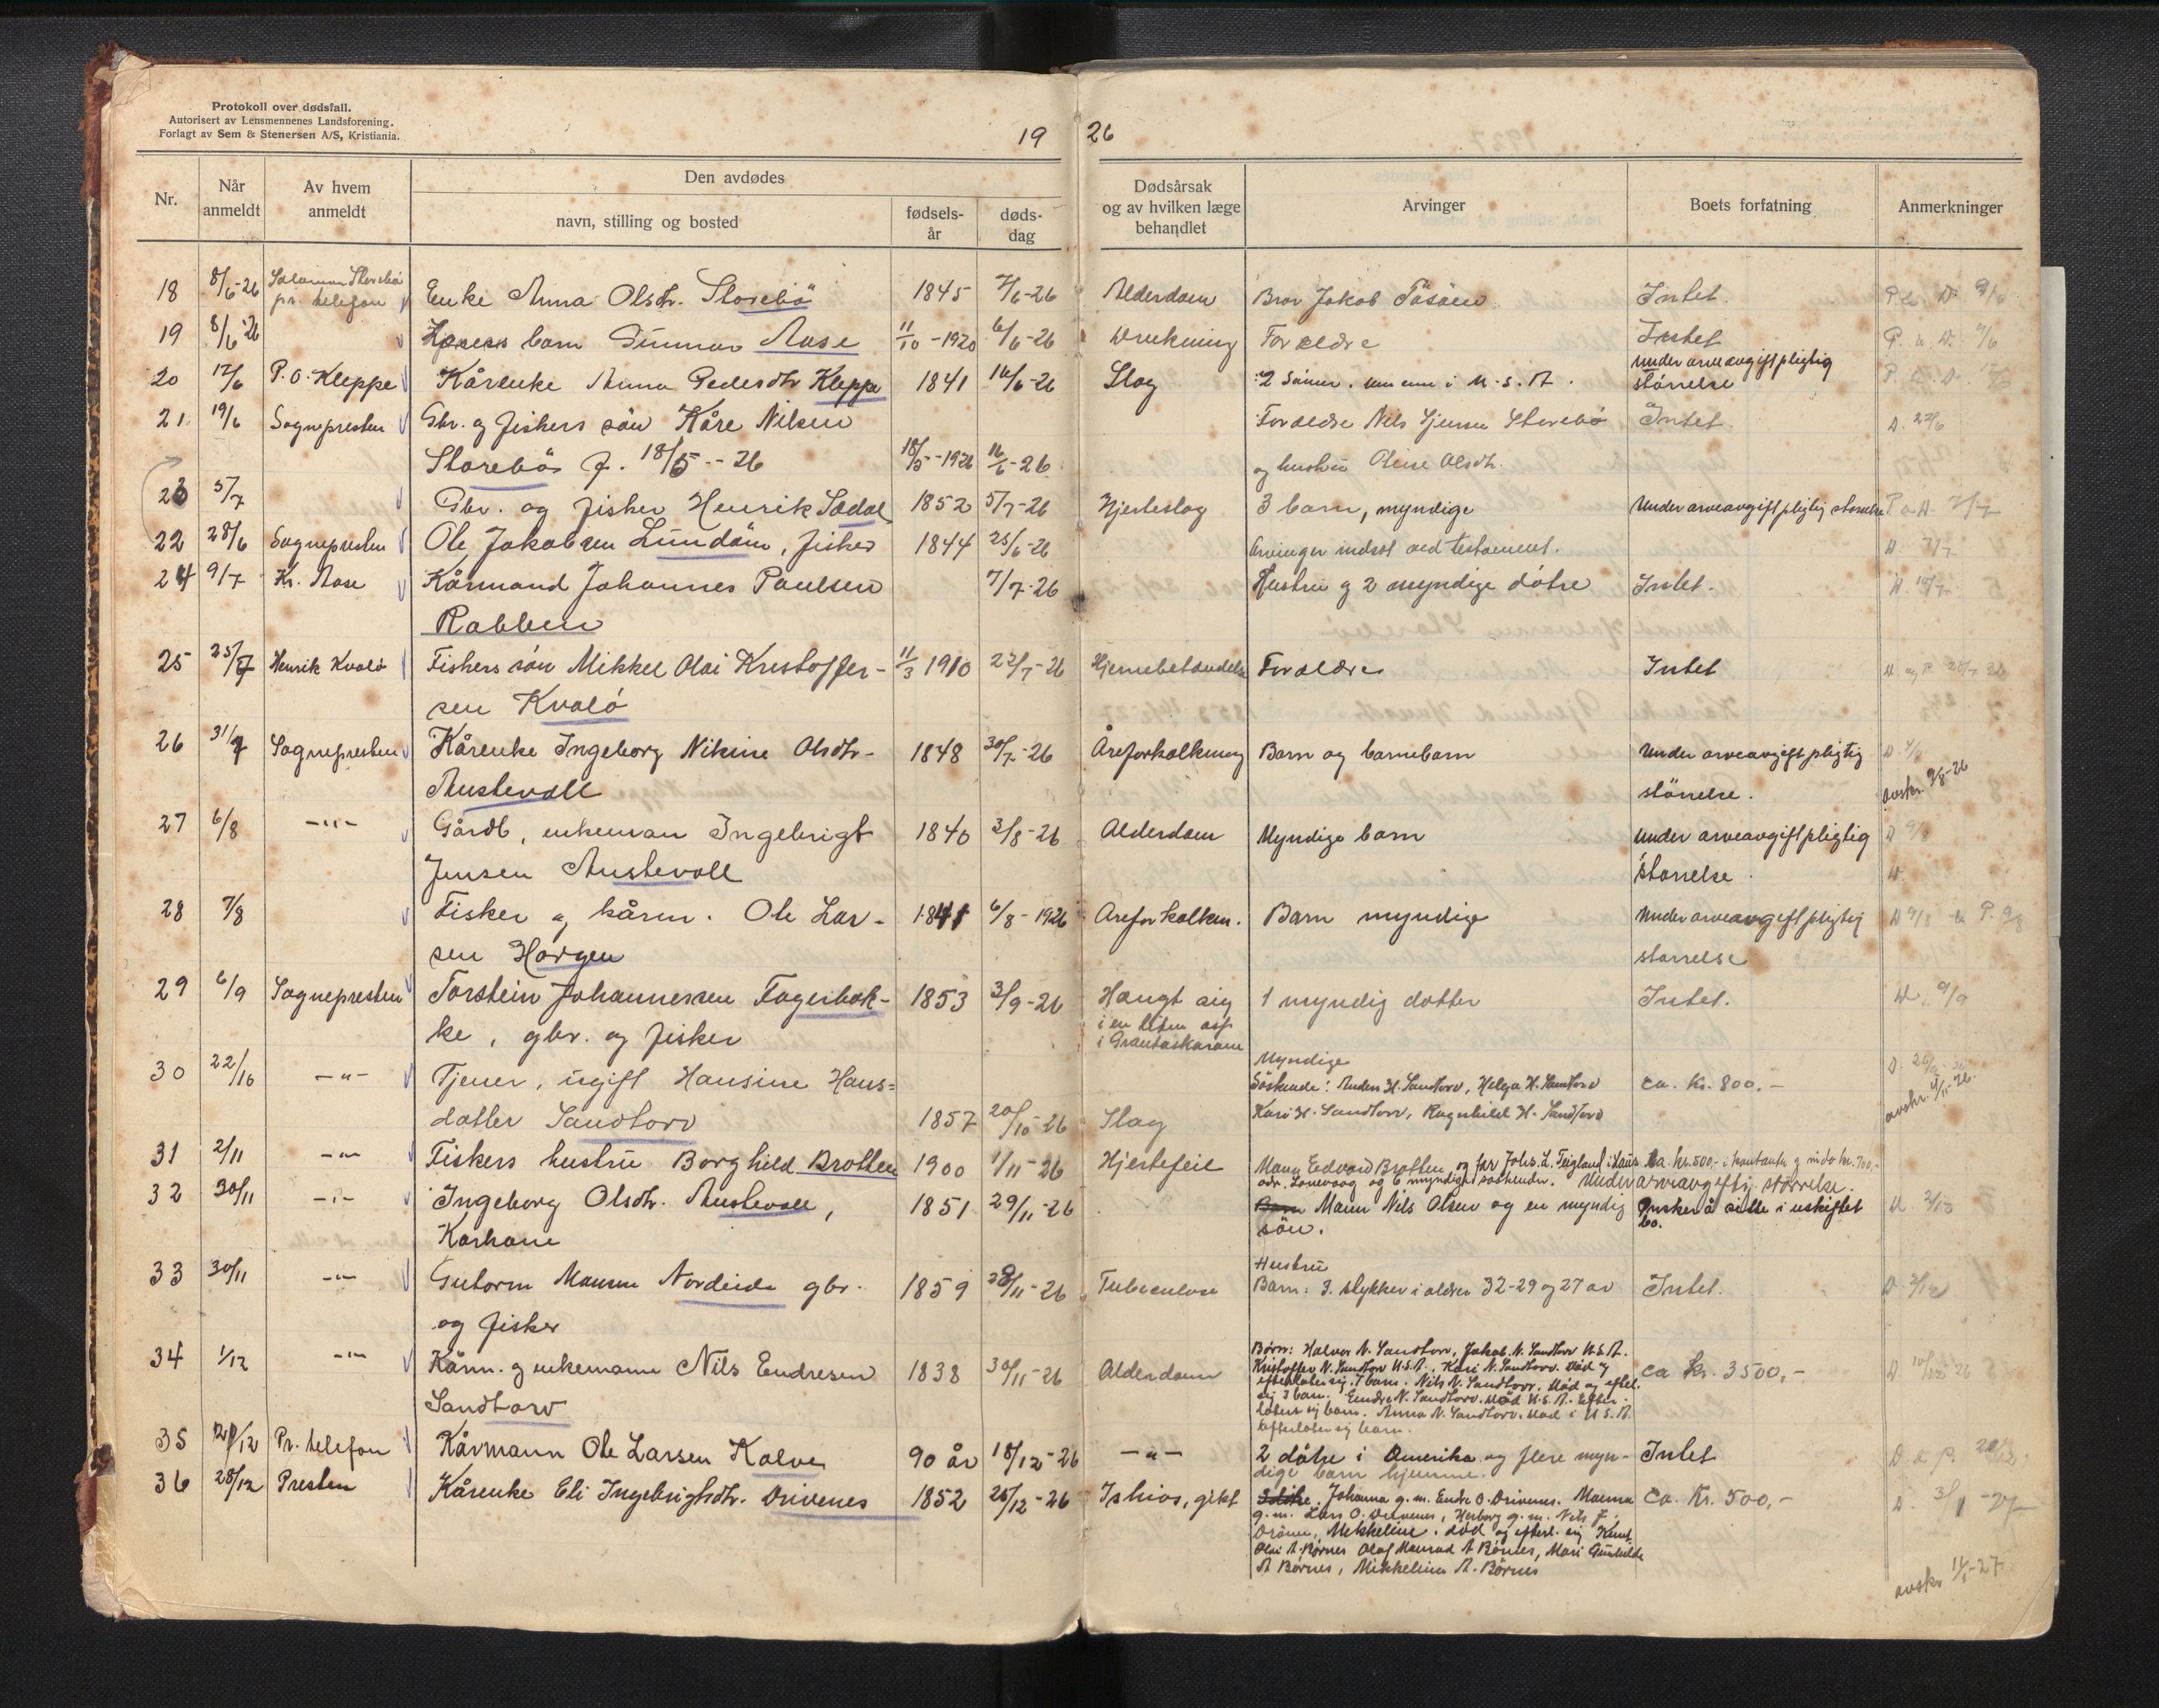 Protokoll over dødsfall.
Autorisert av Lensmennenes Landsforening.
Forlagt av Sem & Stenersen A/S, Kristiania.
19 26
Nr. Når anmeldt Av hvem anmeldt Den avdødes navn, stilling og bosted fødsels-år døds-dag Dødsårsak og av hvilken læge behandlet Arvinger Boets forfatning Anmerkninger
18 8/6-26 Salamon Storebø pr. telefon Enke Anna Olsdtr. Storebø 1845 7/6-26 Alderdom Bror Jakob Intet.
19 8/6-26 barn Gunnar Aase 11/10-1920 6/6-26 Drukning Forældre Intet
20 12/6 P.O. Kleppe Kårenke Anna Pedersdtr Kleppe 1841 10/6-26 Slag 2 Sönner. i U.S.A. under arveavgiftpligtig
störrelse
21 19/6 Sognepresten Gbr. og fiskers sön Kåre Nilsen Forældre Nils Jensen Storebö Intet D. 22/6
Storebö f. 18/5-26 18/5-1926 16/6-26 og hustru Oline Olsdtr.
23 5/7 Gbr. og fisker Henrik Sædal 1852 5/7-26 Hjerteslag 3 barn, myndige Under arveavgiftpligtig størrelse
22 28/6 Sognepresten Ole Jakobsen Lundöen, fisker 1844 25/6-26 Arvinger indsat ved testament. D. 7/7
24 9/7 Kr. Aase Kårmand Johannes Paulsen 7/7-26 Hustru og 2 myndige døtre Intet. D. 10/7
Rabben
25 25/7 Henrik Kvalø Fiskers sön Mikkel Olai Kristoffer- 11/3 1910 22/7-26 Hjernebetændelse Forældre Intet
sen Kvalö
26 31/7 Sognepresten Kårenke Ingeborg Nikine Olsdtr- 1848 30/7-26 Åreforkalkning Barn og barnebarn Under arveavgiftpligtig D 4/8
Austevoll störrelse. avskr. 9/8-26
27 6/8 -"- Gårdb, enkeman Ingebrigt 1840 3/8-26 Alderdom Myndige barn under arveavgiftpligtig D 9/8
Jensen Austevoll størrelse.
28 7/8 Fisker og kårm. Ole Lar- 1841 6/8-1926 Areforkalkn. Barn myndige Under arveavgiftpligtig D 9/8 & P. 9/8
sen Horgen størrelse
29 6/9 Sognepresten Torstein Johannessen Fagerbak- 1853 3/9-26 Hængt sig 1 myndig datter Intet. D. 9/9
ke, gbr. og fisker i en liten
i
30 22/10 -"- Tjener, ugift Hansine Hans= Myndige
Söskende: Anders H. Sandtorv, Helga H. Sandtorv ca. Kr. 800.-
datter Sandtorv 1857 20/10-26 Slag Kari H. Sandtorv, Ragnhild H. Sandtorv avskr. 4/11-26
31 2/11 -"- Fiskers hustru Borghild Brotten 1900 1/11-26 Hjertefeil Mann Edvard Brotten og far Johs. L. Teigland ca. kr. 500,- i kontanter
adr. Lonevaag og 6 myndige søskender. Under arveavgiftig størrelse.
32 30/11 -"- Ingeborg Olsdtr. Austevoll, 1851 29/11-26 Barn Mann Nils Olsen og en myndig Önsker å sitte i uskiftet
Karkone sön. bo.
33 30/11 -"- Gutorm Monsen Nordeide gbr. 1859 28/11-26 Tuberculose Hustru
Barn: 3. stykker i alder 32-29 og 27 år Intet. D 2/12
og fisker
34 1/12 -"- Kårm. og enkemann Nils Endresen 1838 30/11-26 Alderdom Børn: Halvor N. Sandtorv, Jakob N. Sandtorv U.S.A. ca kr. 3500,-
Kristoffer N. Sandtorv U.S.A., Kari N. Sandtorv. død og
efterlater sig 7 barn. Nils N. Sandtorv. død og efterl.
Sandtorv sig 3 barn. Endre N. Sandtorv. død U.S.A. Efter-
later sig barn. Anna N. Sandtorv. död i U.S.A.
Efterlater sig barn.
35 20/12 Pr. telefon Kårmann Ole Larsen Kalve 90 år 18/12-26 -"- 2 døtre i Amerika og flere myn- Intet
dige barn hjemme.
36 28/12 Presten Kårenke Eli Ingebrigtsdtr. Drivenes 1852 26/12-26 Ischias, gikt Johanna g.m. Endre O. Drivenes. Ca. Kr. 500,- D. 3/1-27
g.m. Lars O. Drivenes, Herborg g.m. Nils J.
Drönen, Mikkeline. død og efterl. sig Knut
Olai A. Børnes Olaf Monrad A Børnes, Mari Gunhilde
A Børnes, Mikkeline A. Børnes
avskr 11/1-27